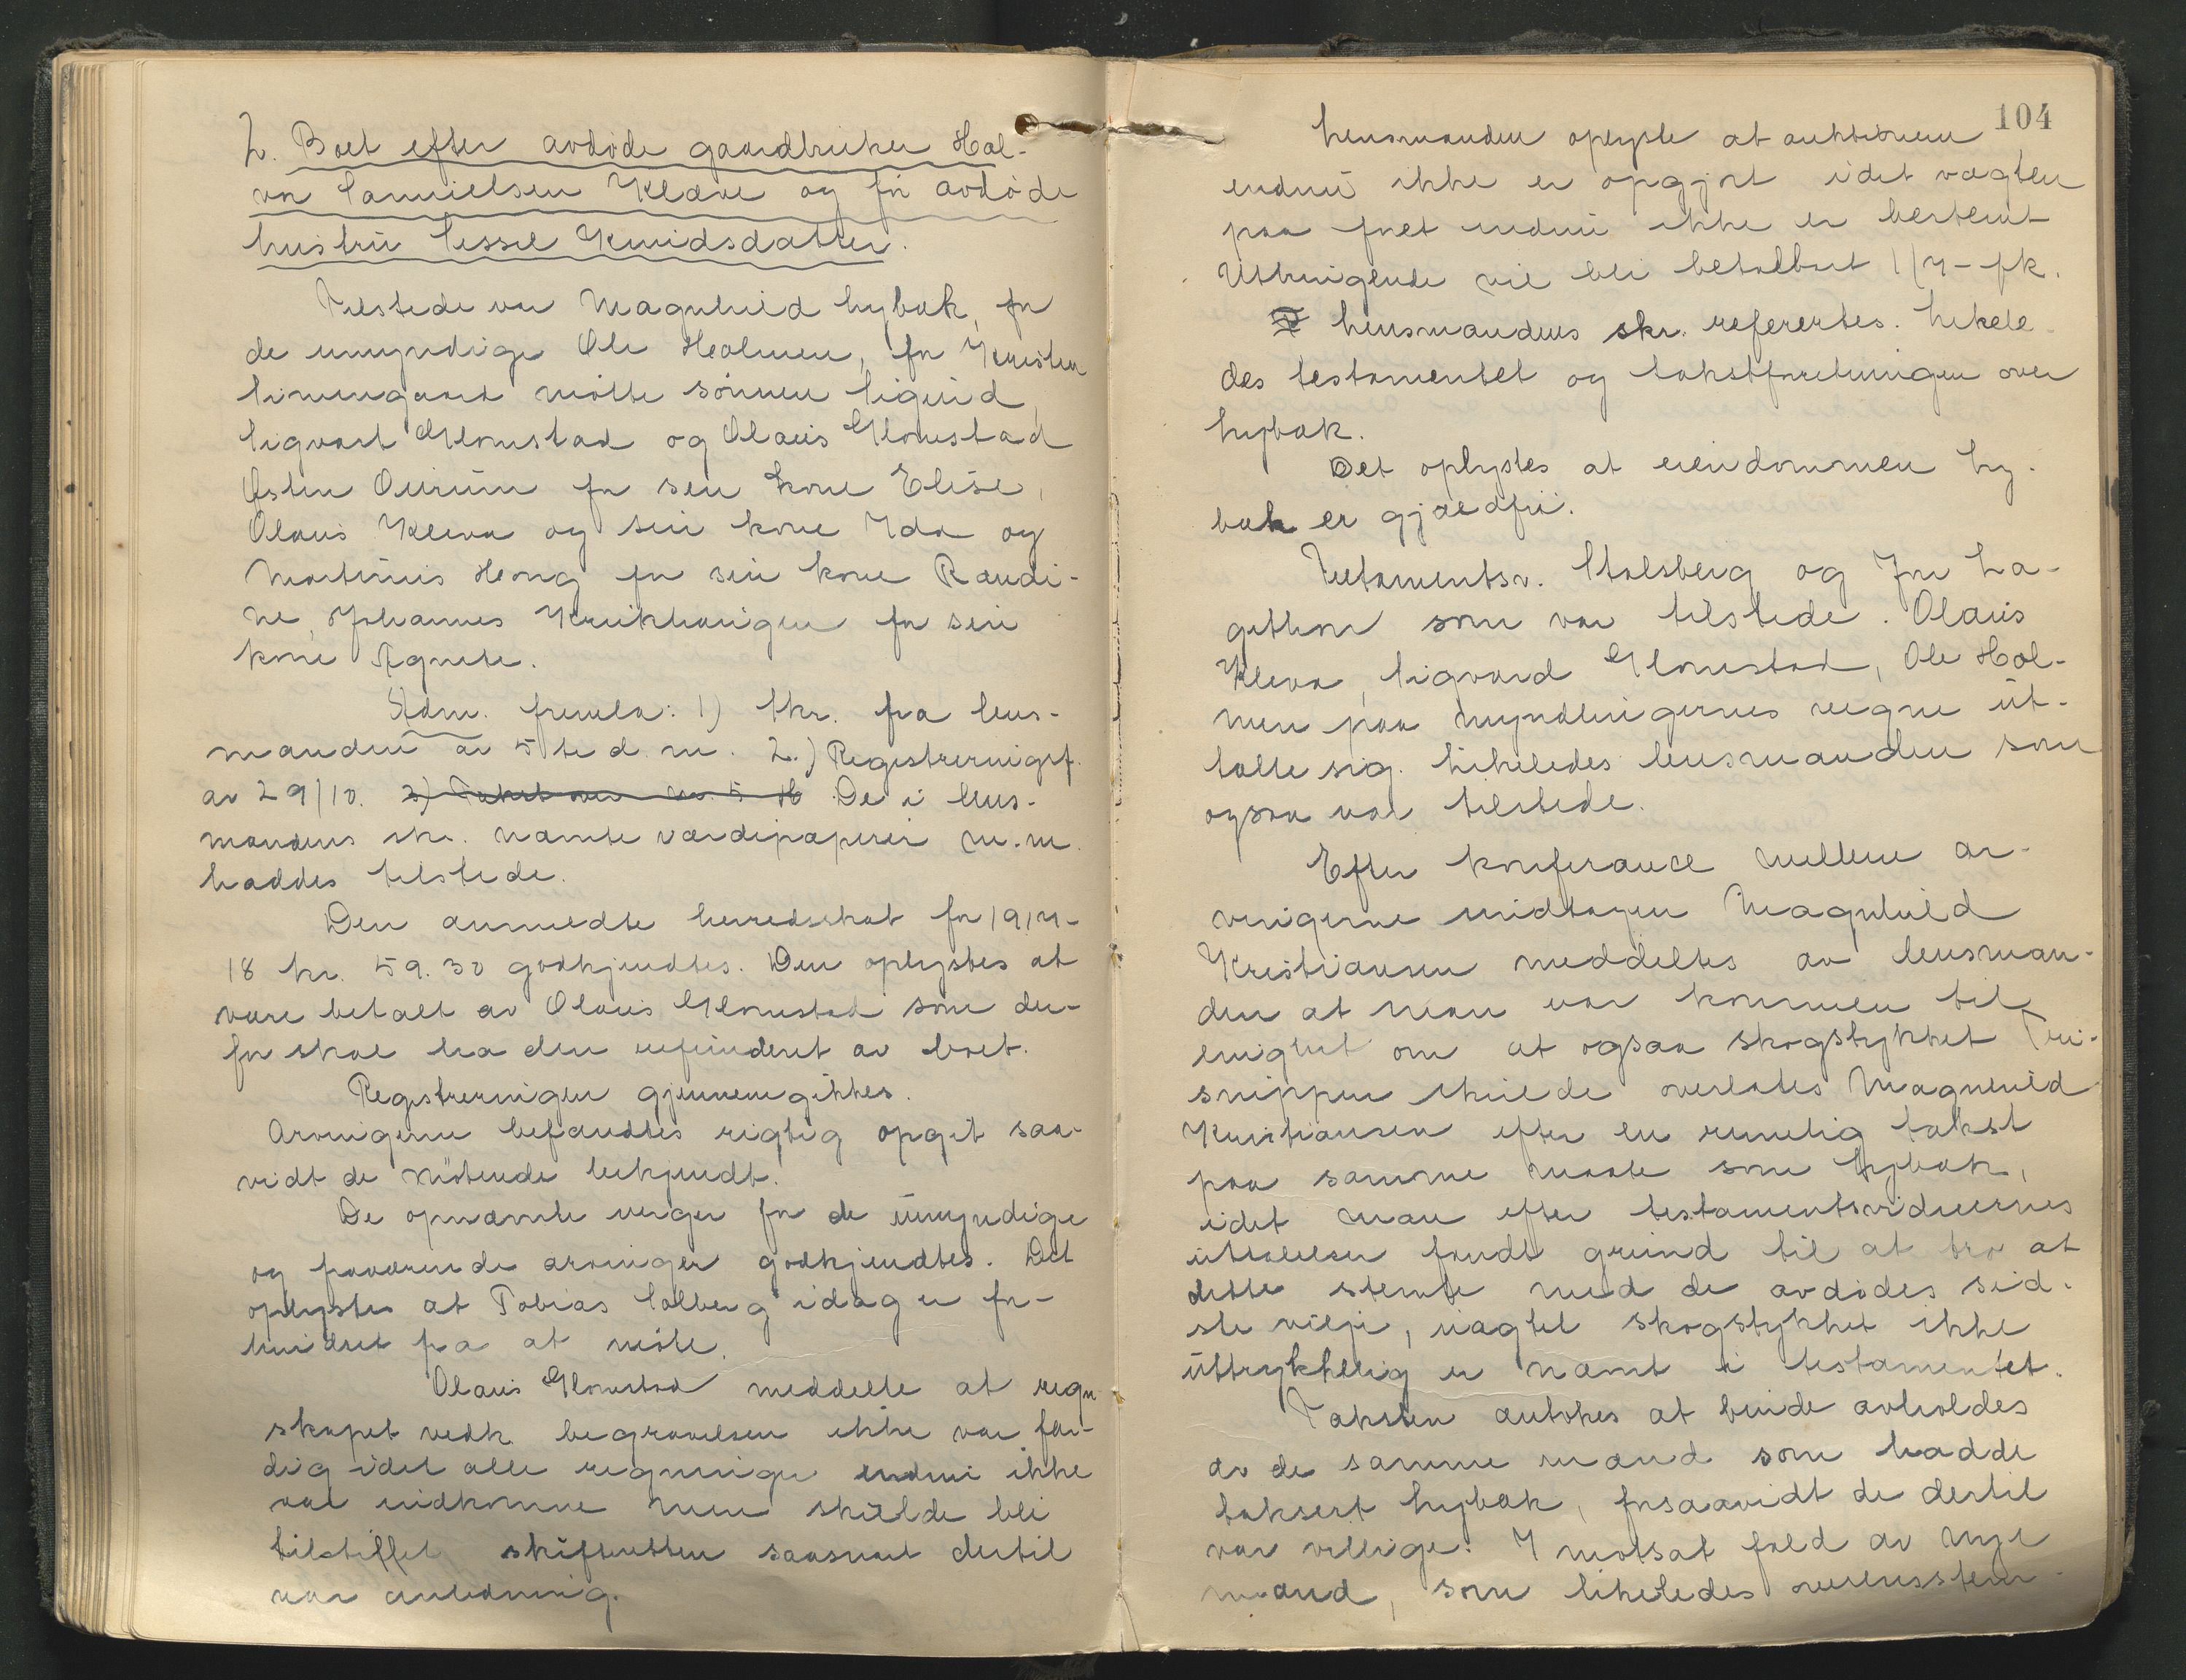 2. Boet efter avdøde gaardbruker Hal-
vor Samuelsen Kleve og før avdøde
hustru Sissel Knudsdatter.
Tilstede var Magnhild Lybæk, for
de umyndige Ole Holmen, for Kristen
møtte sønnen Sigurd,
Sigvart Glomstad og Olaus Glomstad
Østen for sin kone Elise,
Olaus Kleva og sin kone Ida og
Martinus Houg for sin kone Randi-
ne, Johannes for sin
kone Agnete.
Adm. fremla: 1) Skr. fra lens-
manden av 5te d. m. 2.) Registreringsf.
av 29/10. De i lens-
mandens skr. nævnte værdipapirer m.m.
haddes tilstede.
Den anmeldte herredsskat for 1917-
18 kr. 59.30 godkjendtes. Den oplystes at
være betalt av Olaus Glomstad som der-
for skal ha den refunderet av boet.
Registreringen gjennemgikkes.
Arvingerne befandtes rigtig opgit saa-
vidt de møtende bekjendt.
De opnævnte verger for de umyndige
og fraværende arvinger godkjendtes. Det
oplystes at Tobias Solberg idag er for-
hindret fra at møte.
Olaus Glomstad meddelte at regn-
skapet vedk. begravelsen ikke var fær-
dig idet alle regninger endnu ikke
var indkomne men skulde bli
tilstillet skifteretten saasnart dertil
var anledning.
104
Lensmanden oplyste at auktionen
endnu ikke er opgjort idet vægten
paa foret endnu ikke er bestemt
Utbringende vil bli betalbart 1/4 - fk.
Lensmandens skr. refertes. Likele-
des testamentet og takstforretningen over
Lybæk.
Det oplystes at eiendommen Ly-
bæk er gjældfri.
Testamentsv. Stalsberg og
som var tilstede. Olaus
Kleva, Sigvard Glomstad, Ole Hol-
men paa myndlingernes vegne ut-
talte sig. Likeledes lensmanden som
ogsaa var tilstede.
Efter konferance mellem ar-
vingerne undtagen Magnhild
Kristiansen meddeltes av lensman-
den at man var kommen til
enighet om at ogsaa skogstykket
snippen skulde overlates Magnhild
Kristiansen efter en rimelig takst
paa samme maate som Lybæk,
idet man efter testamentsvidnernes
uttalelser fandt grund til at tro at
dette stemte med de avdødes sid-
ste vilje, uagtet skogstykket ikke
uttrykkelig er nævnt i testamentet.
Taksten antokes at burde avholdes
av de samme mænd som hadde
taksert Lybæk, forsaavidt de dertil
var villige. I motsat fald av nye
mænd, som likeledes overensstem-